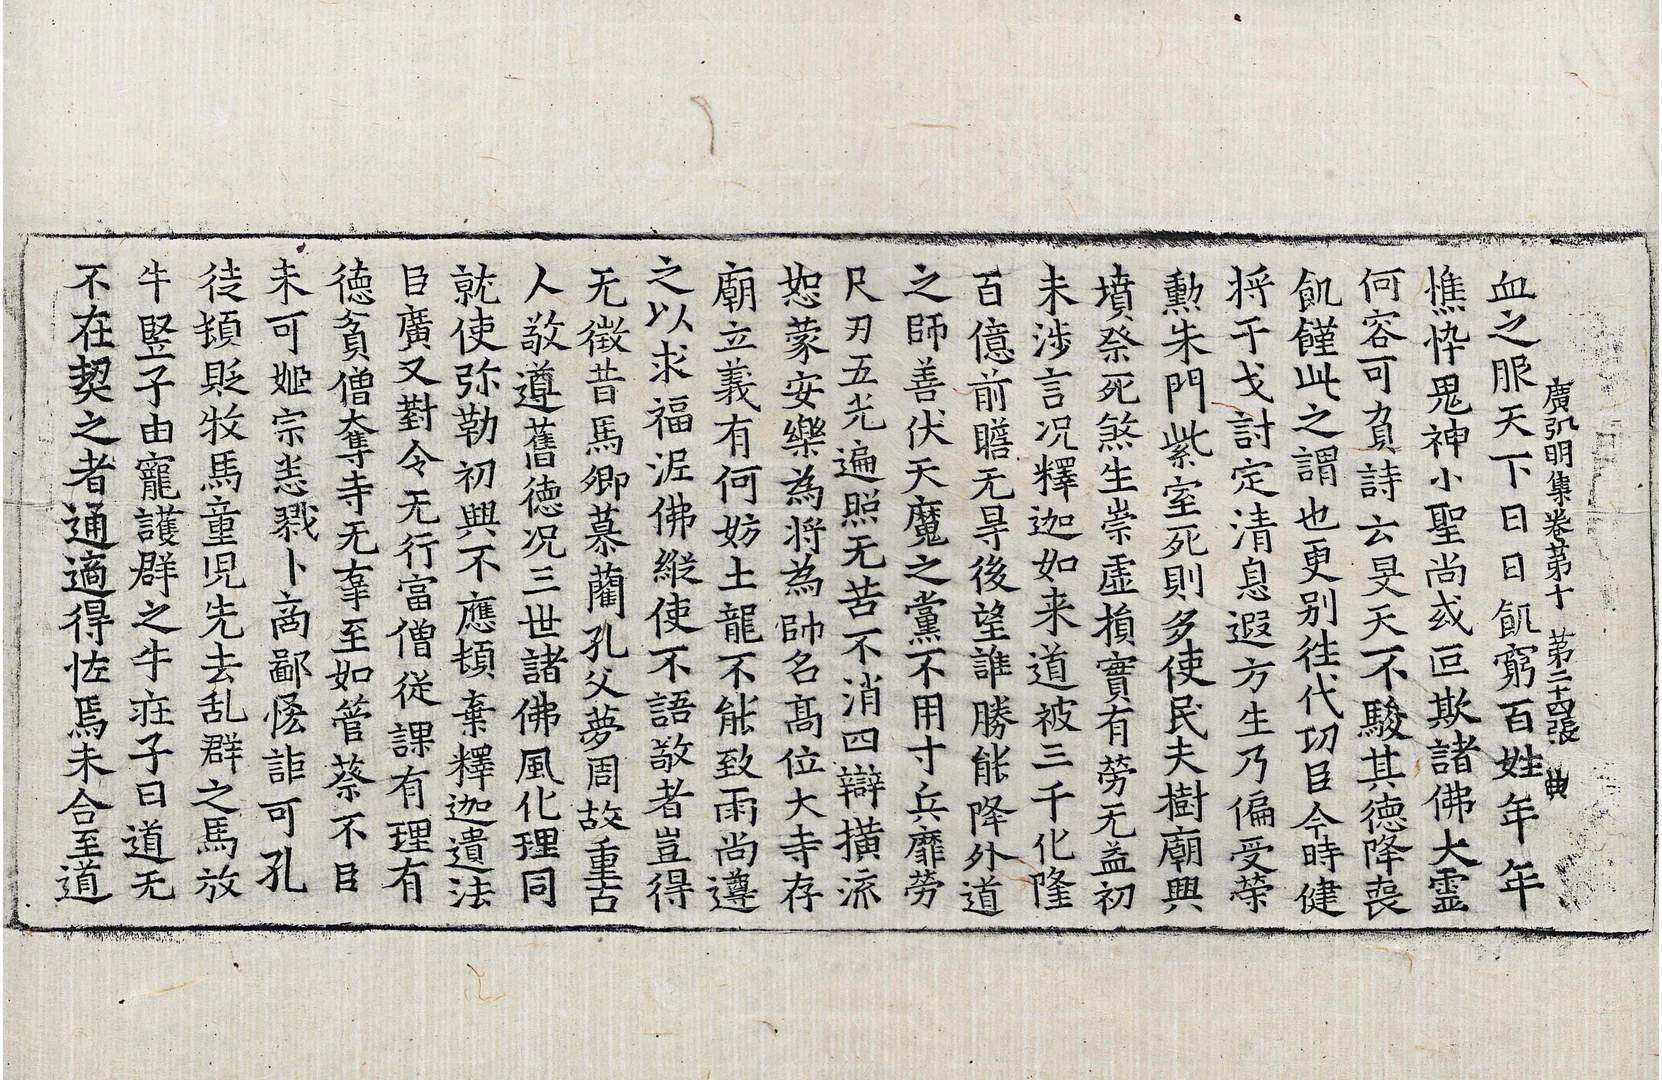 廣弘明集卷第十　第二十四張　典
血之服天下日日飢窮百姓年年
憔悴鬼神小聖尚或叵欺諸佛大靈
何容可負詩云旻天不駿其德降喪
飢饉此之謂也更别往代功臣今時健
將干戈討定清息遐方生乃偏受榮
勳朱門紫室死則多使民夫樹廟興
墳祭死煞生崇虛損實有勞无益初
未涉言况釋迦如来道被三千化隆
百億前瞻无㝵後望誰勝能降外道
之師善伏天魔之黨不用寸兵靡勞
尺刃五光遍照无苦不消四辯橫流
恕蒙安樂為將為帥名高位大寺存
廟立義有何妨土龍不能致雨尚遵
之以求福泥佛縱使不語敬者豈得
无徵昔馬卿慕藺孔父夢周故重古
人敬遵舊德况三世諸佛風化理同
就使弥勒初興不應頓棄釋迦遺法
臣廣又對令无行富僧從課有理有
德貧僧奪寺无辜至如管蔡不臣
未可姬宗悉戮卜商鄙恡詎可孔
徒頓貶牧馬童児先去乱群之馬放
牛竪子由寵護群之牛莊子曰道无
不在契之者通適得怪焉未合至道